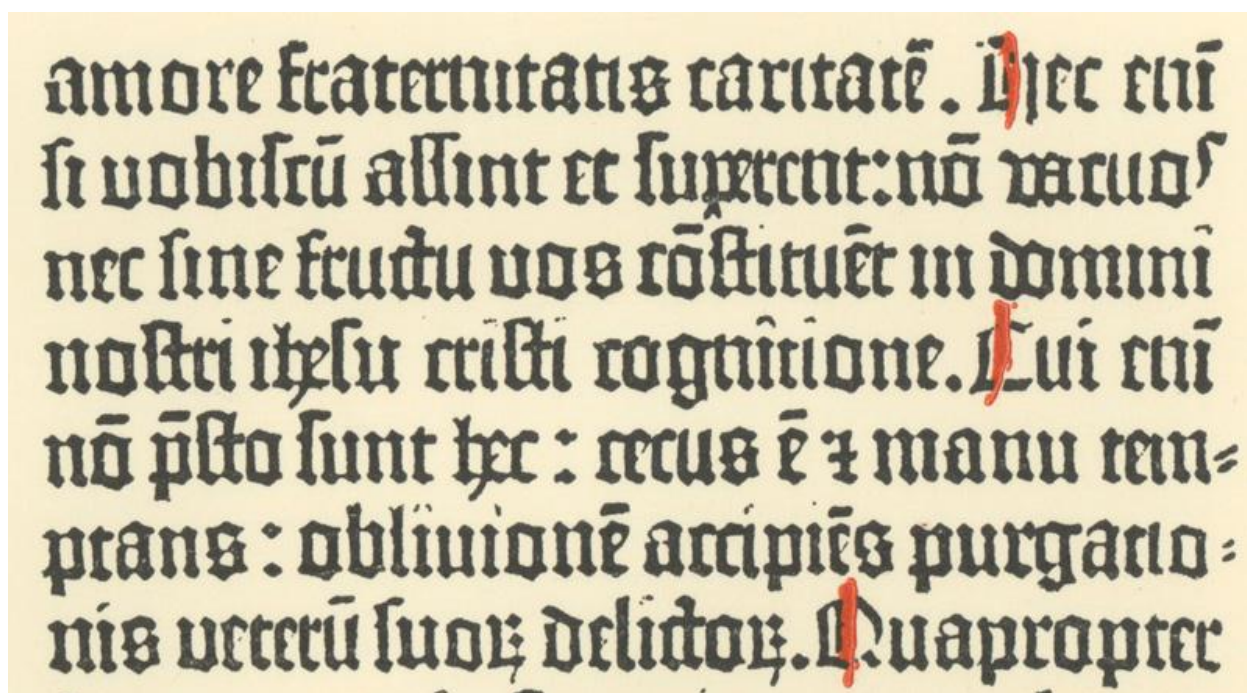 amore fraternitatis caritatē. Hec eni̅
si uobiſcū aſſint et ſuperent: nō vacuoꝰ
nec ſine fructu uos cōſtituēt in domini
noſtri iheſu criſti cognitione. Cui eni̅
nō p̄ſto ſunt hec: cecus ē ⁊ manu tem⸗
ptans: obliuionē accipiēs purgatio⸗
nis veterū ſuoꝝ delictoꝝ. Quapropter